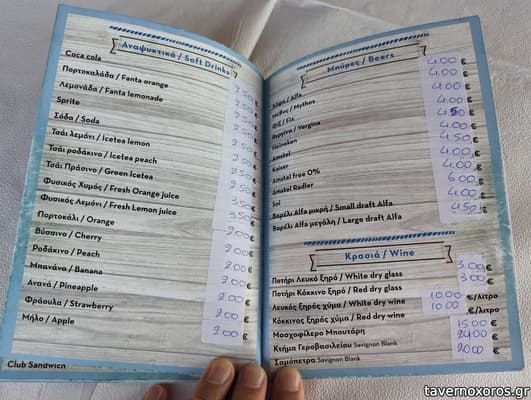 Αναψυκτικά / Soft Drinks
Coca cola
Πορτοκαλάδα / Fanta orange
Λεμονάδα / Fanta lemonade
Sprite
Σόδα / Soda
Τσάι λεμόνι / Icetea lemon
Τσάι ροδάκινο / Icetea peach
Τσάι Πράσινο / Green Icetea
Φυσικός Χυμός / Fresh Orange juice
Φυσικός Λεμόνι / Fresh Lemon juice
Πορτοκάλι / Orange
Βύσσινο / Cherry
Ροδάκινο / Peach
Μπανάνα / Banana
Ανανά / Pineapple
Φράουλα / Strawberry
Μήλο / Apple
2.50 €
2.50 €
2.50 €
2.50 €
2.50 €
2.50 €
2.50 €
3.50 €
3.50 €
2.00 €
2.00 €
2.00 €
2.00 €
2.00 €
2.00 €
2.00 €
Club Sandwich
Μπύρες / Beers
Άλφα / Alfa
Μύθος / Mythos
Φιξ / Fix
Βεργίνα / Vergina
Heineken
Amstel
Kaiser
Amstel free 0%
Amstel Radler
Sol
Βαρέλι Alfa μικρή / Small draft Alfa
Βαρέλι Alfa μεγάλη / Large draft Alfa
4.00 €
4.00 €
4.00 €
4.00 €
4.50 €
4.00 €
4.50 €
4.00 €
4.00 €
6.00 €
4.00 €
4.50 €
Κρασιά / Wine
Ποτήρι Λευκό ξηρό / White dry glass 3.00 €
Ποτήρι Κόκκινο ξηρό / Red dry glass 3.00 €
Λευκός ξηρός χύμα / White dry wine 10.00 €/λίτρο
Κόκκινος ξηρός χύμα / Red dry wine 10.00 €/λίτρο
Μοσχοφίλερο Μπουτάρη 15.00 €
Κτήμα Γεροβασιλείου Savignon Blank 24.00 €
Σαμόπετρα Savignon Blank 20.00 €
tavernoxoros.gr